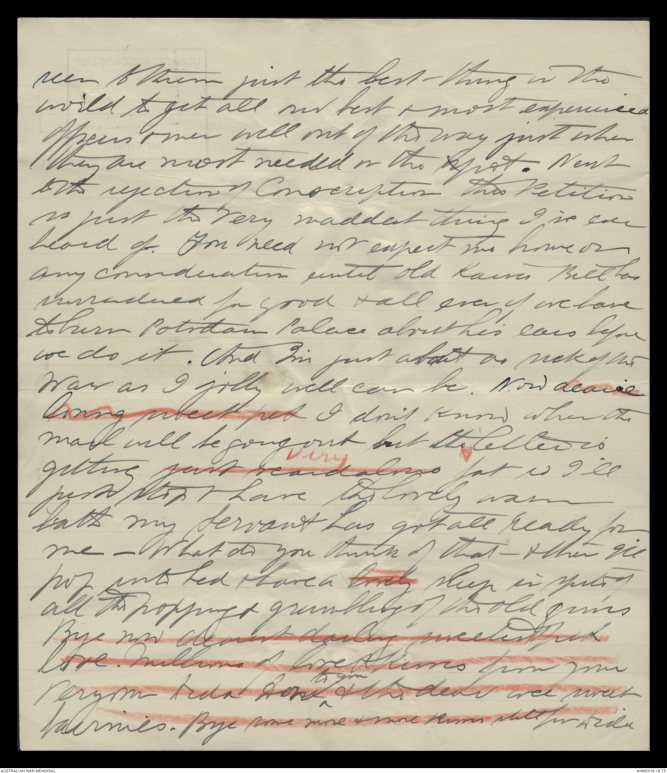 seem to them just the best thing in the
world to get all our best & most experienced
Officers & men well out of the way just when
they are most needed on the spot. Next
to the rejection of Conscription this Petition
is just the very maddest thing I've ever
heard of. You need not expect me home on
any consideration until old Kaiser Bill has
surrendered for good & all even if we have
to burn Potsdam Palace about his ears before
we do it. And I'm just about as sick of the
War as I jolly well can be. Now dearie
loving sweet pet I don't know when the
mail will be going out but this letter is
very
getting just scandalous fat so I'll
just stop & have the lovely warm
bath my servant has got all ready for
me – What do you think of that – & then I'll
pop into bed & have a lovely sleep in spite of
all the popping & grumbling of the old guns
Bye now dearest darling sweetest pet
love. Millions of love & kisses from your
to you
very own Dida & the dear wee sweet
bairnies. Bye more & more kisses
AUSTRALIAN WAR MEMORIAL